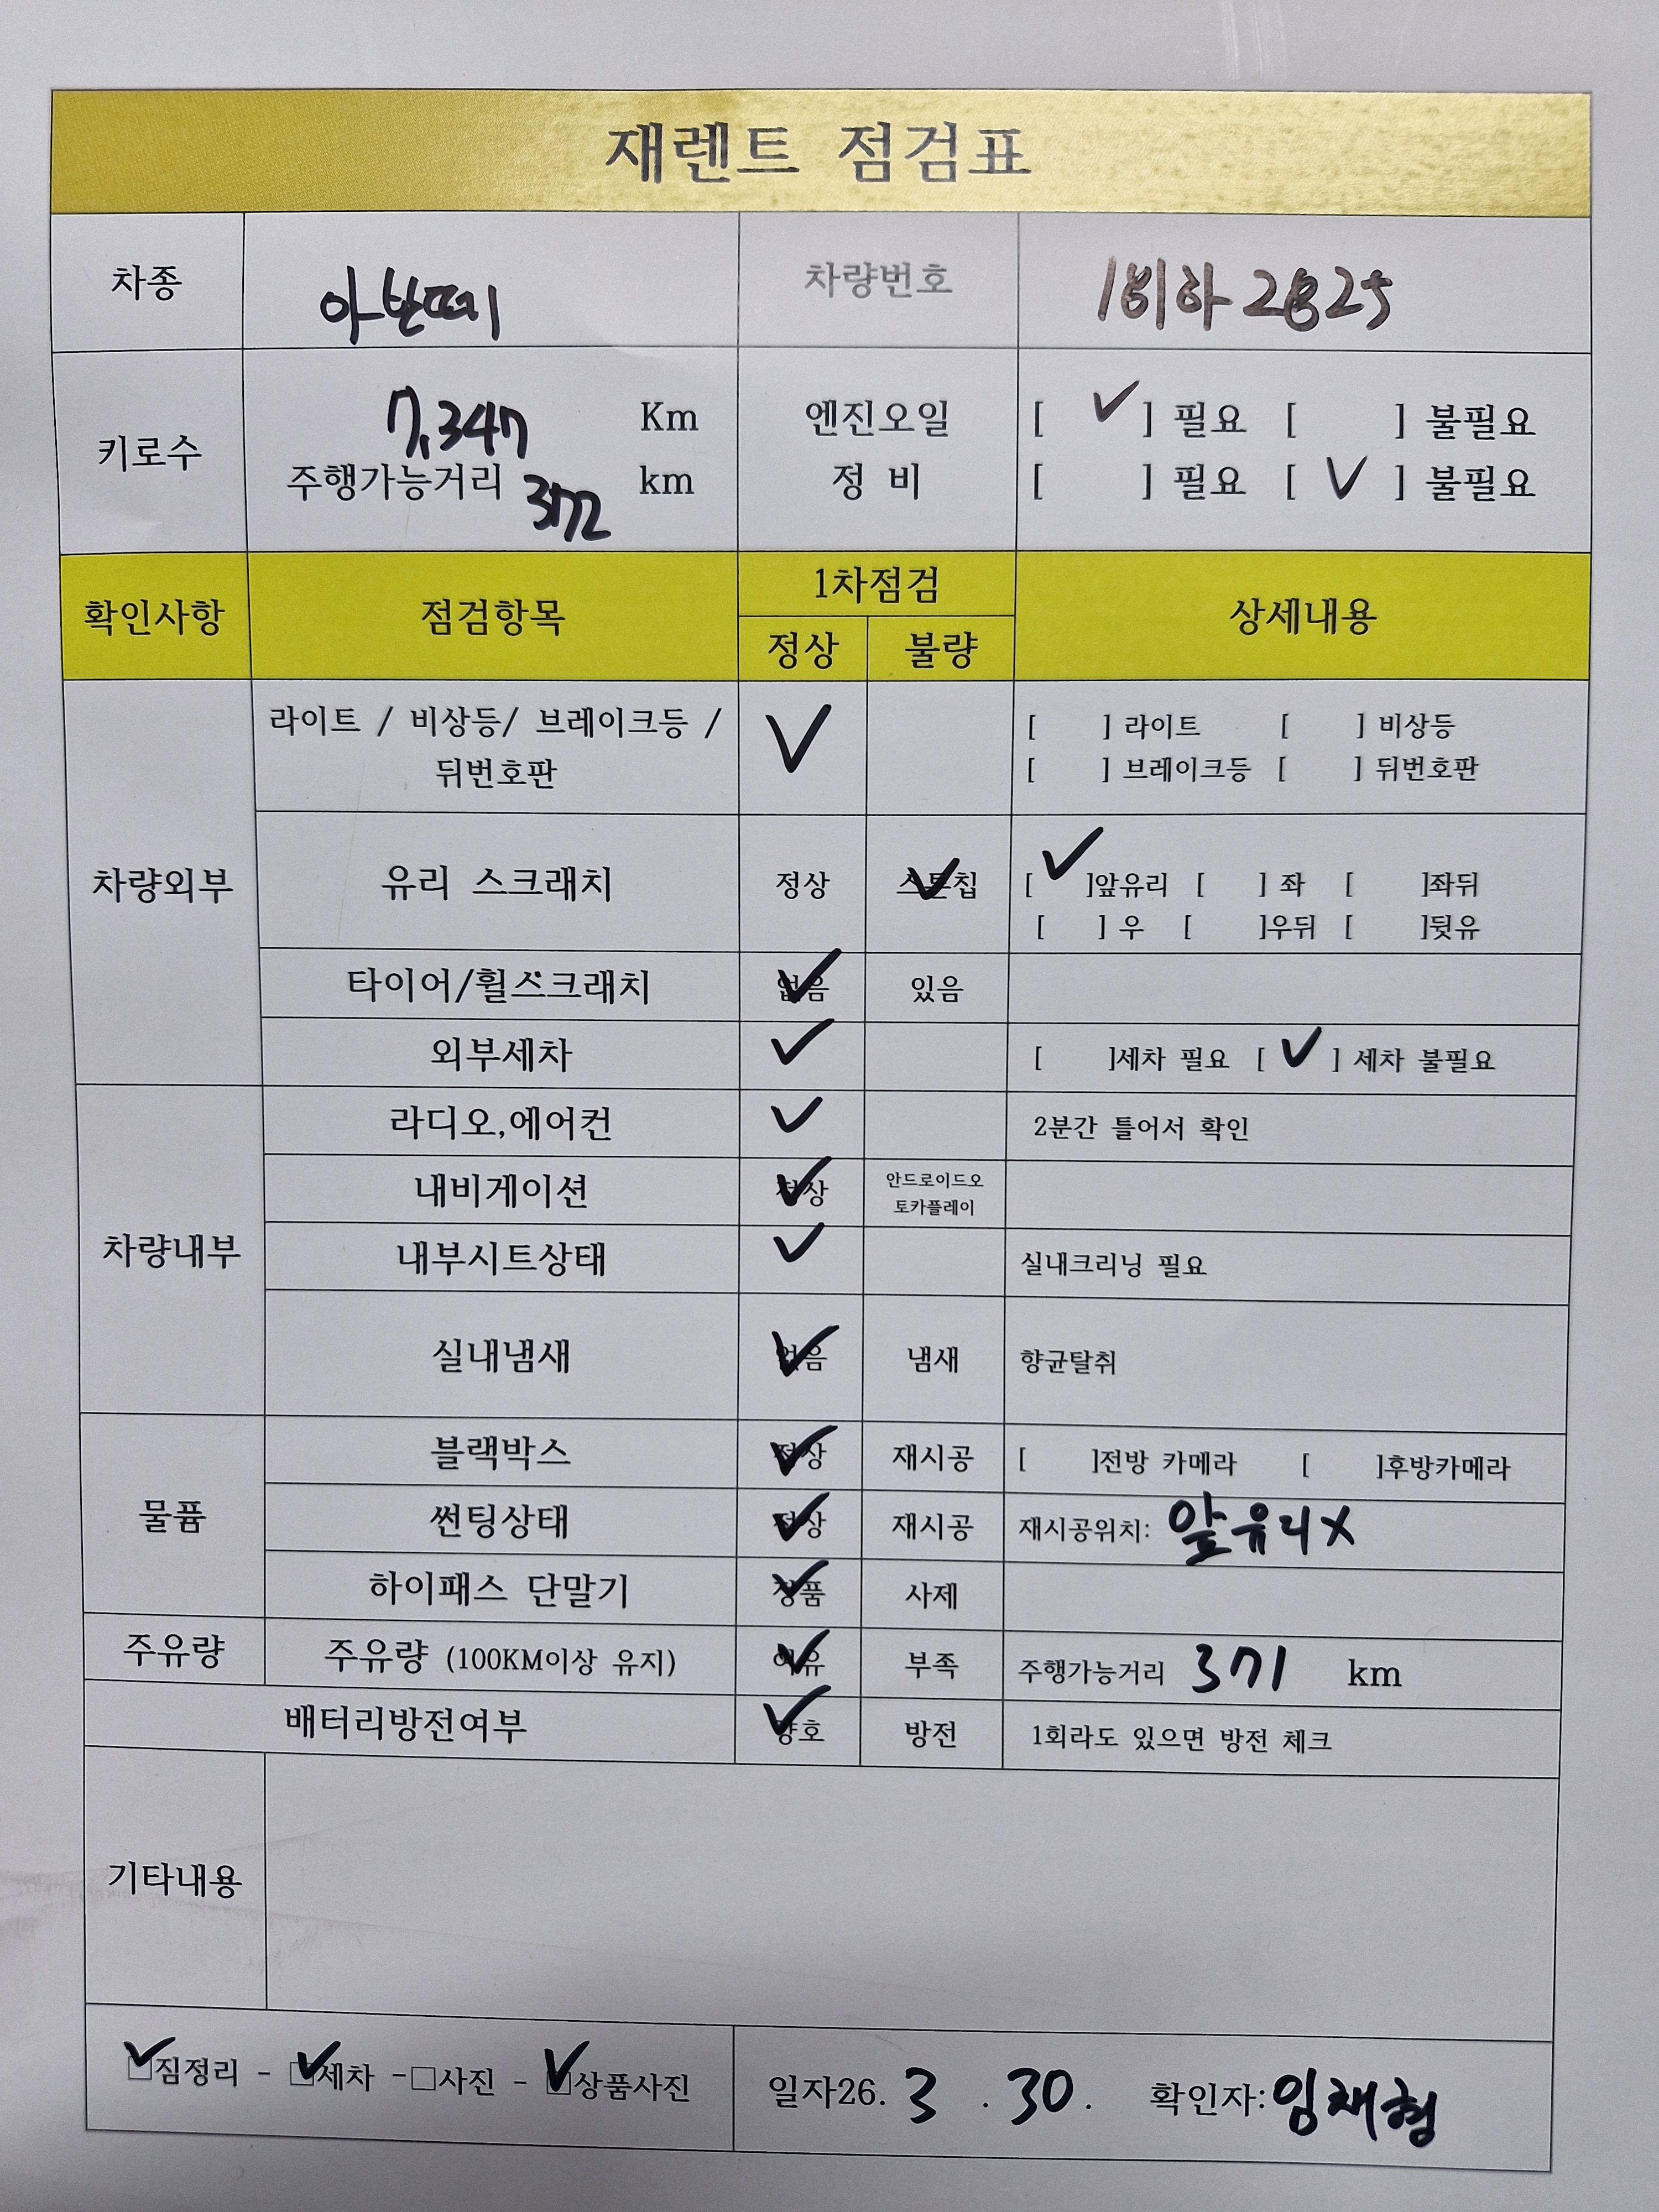 재렌트 점검표
차종 아반떼 차량번호 하 2825
키로수 7,347 Km 엔진오일 [ ✓ ] 필요 [ ] 불필요
주행가능거리 372 km 정 비 [ ] 필요 [ ✓ ] 불필요
확인사항 점검항목 1차점검 상세내용
정상 불량
차량외부
라이트 / 비상등/ 브레이크등 / ✓ [ ] 라이트 [ ] 비상등
뒤번호판 [ ] 브레이크등 [ ] 뒤번호판
유리 스크래치 정상 스톤칩 ✓ [ ✓ ]앞유리 [ ] 좌 [ ]좌뒤
[ ] 우 [ ]우뒤 [ ]뒷유
타이어/휠쓰크래치 없음 ✓ 있음
외부세차 ✓ [ ]세차 필요 [ ✓ ] 세차 불필요
차량내부
라디오,에어컨 ✓ 2분간 틀어서 확인
내비게이션 정상 ✓ 안드로이드오
토카플레이
내부시트상태 ✓ 실내크리닝 필요
실내냄새 없음 ✓ 냄새 향균탈취
물품
블랙박스 정상 ✓ 재시공 [ ]전방 카메라 [ ]후방카메라
썬팅상태 정상 ✓ 재시공 재시공위치: 앞유리X
하이패스 단말기 정품 ✓ 사제
주유량 주유량 (100KM이상 유지) 여유 ✓ 부족 주행가능거리 371 km
배터리방전여부 양호 ✓ 방전 1회라도 있으면 방전 체크
기타내용
☑짐정리 - ☑세차 -□사진 - ☑상품사진 일자26. 3 . 30 . 확인자:임채형